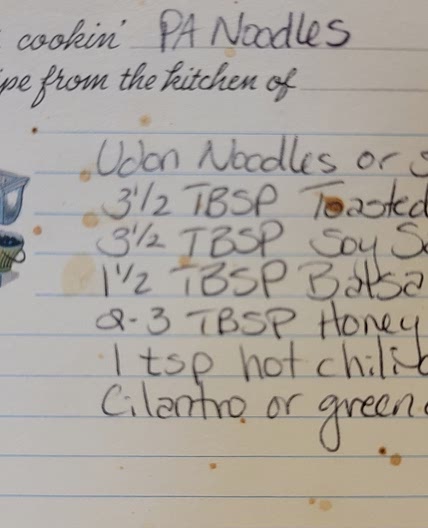 cookin' PA Noodles
from the kitchen of
Udon Noodles or
3 1/2 TBSP Toasted
3 1/2 TBSP Soy
1 1/2 TBSP Balsa
2-3 TBSP Honey
1 tsp hot chili
Cilantro or green